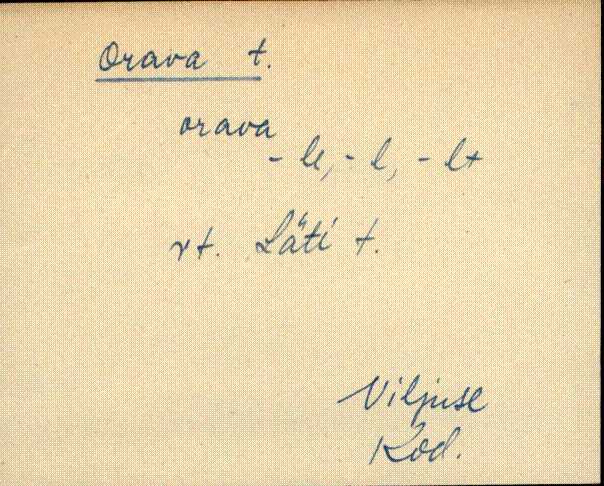 Orava t.
orava
- le, - l, - lt
vt. Läti t.
Viljuse
Kod.